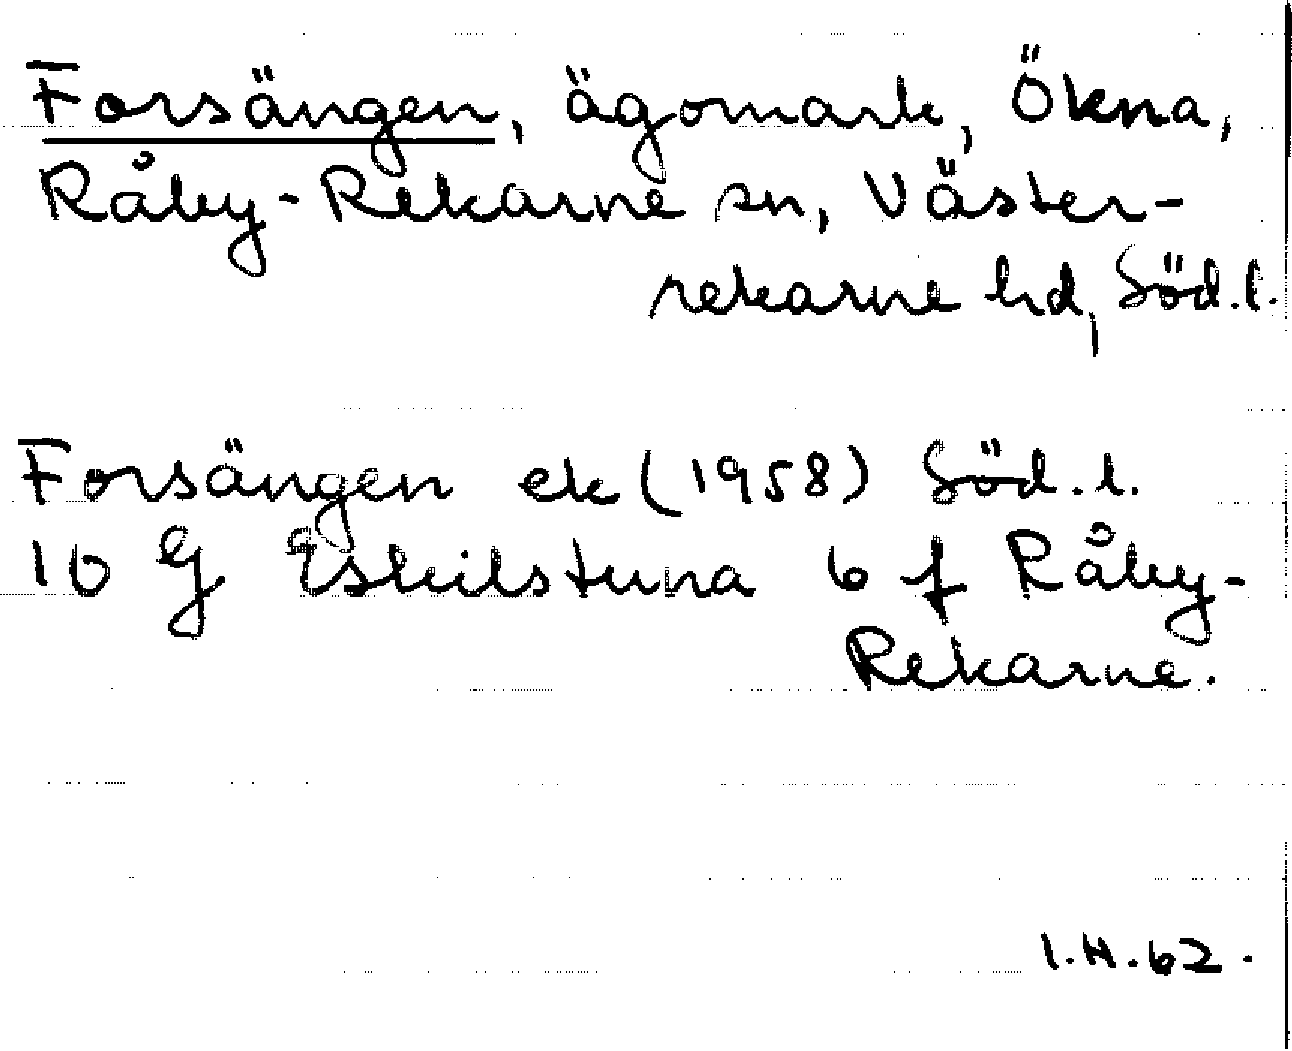 Forsängen, ägomark, Ökna,
Råby-Rekarne sn, Väster-
rekarne hd, Söd.l.
Forsängen ek (1958) Söd.l.
10 G Eskilstuna 6 f Råby-
Rekarne.
I.H.62.